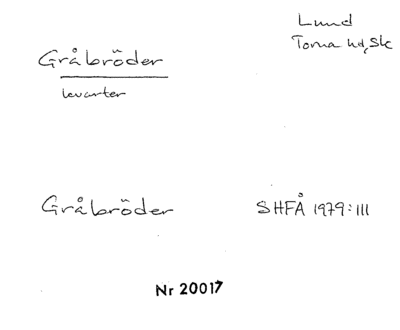 Lund
Torna hd, Sk
Gråbröder
kvarter
Gråbröder
SHFÅ 1979:111
Nr 20017